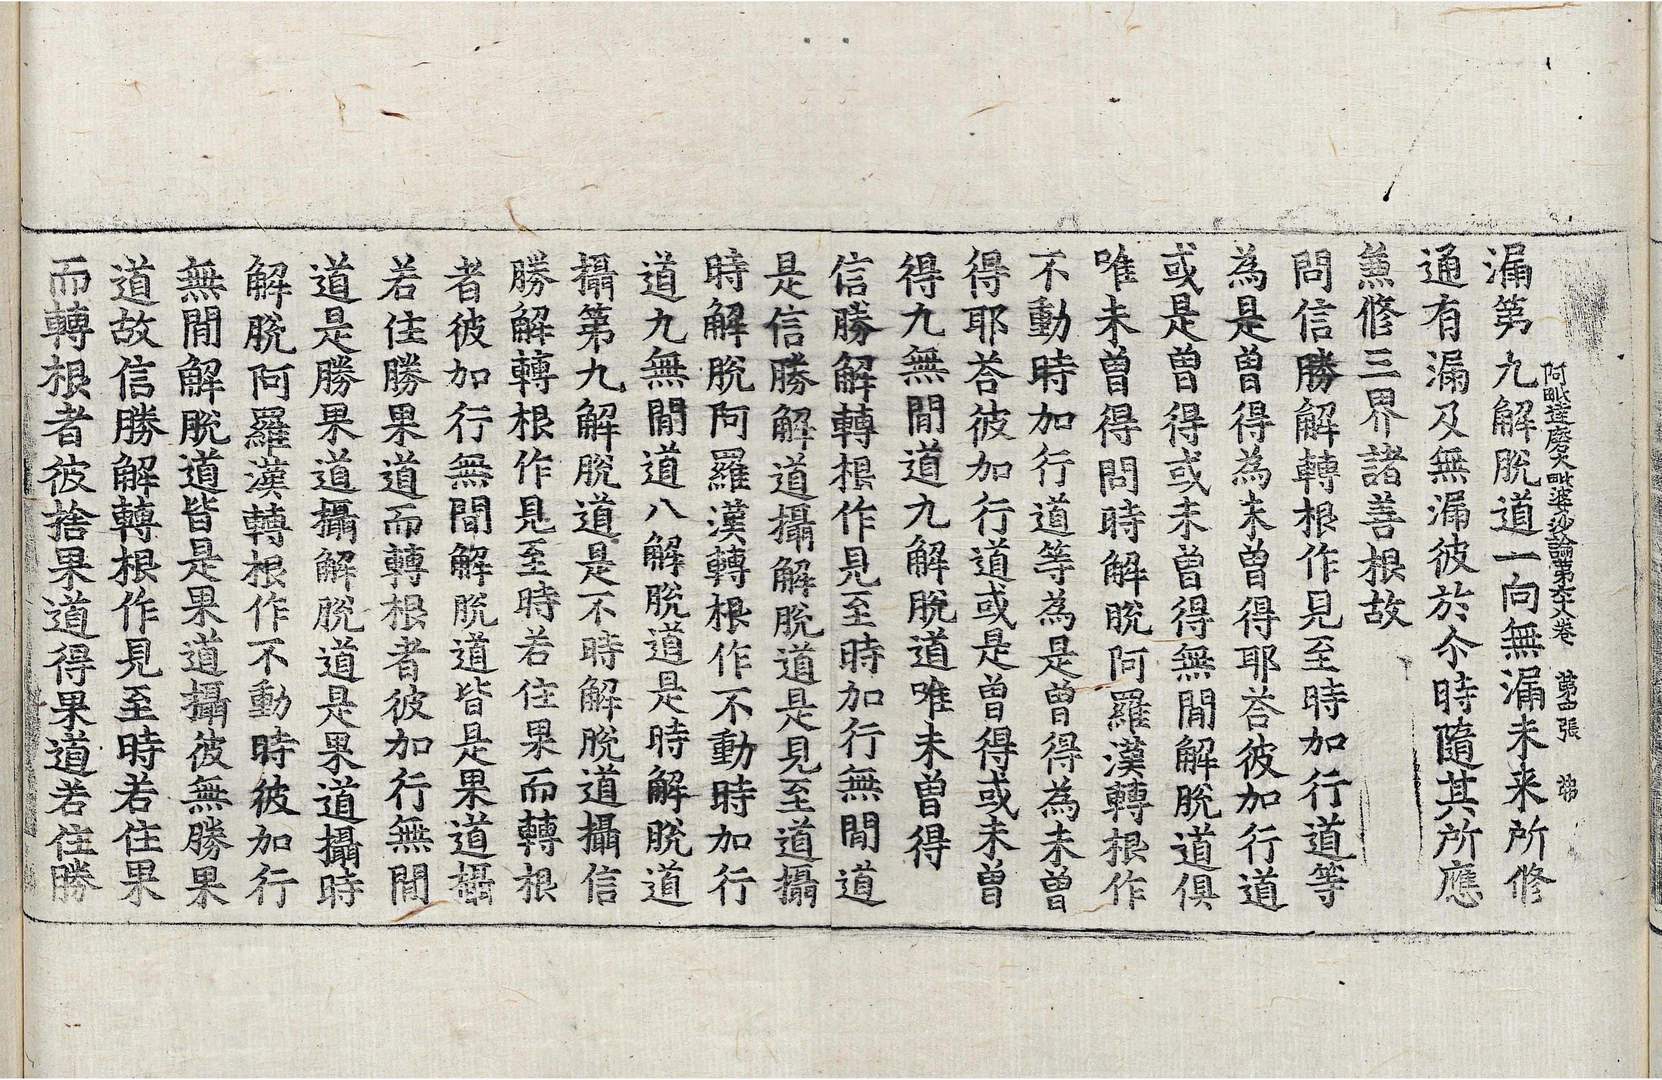 阿毗達磨大毗婆沙論第六十八卷 第十四張 弗
漏第九解脫道一向無漏未来所修
通有漏及無漏彼於尒時隨其所應
兼修三界諸善根故
問信勝解轉根作見至時加行道等
為是曽得為未曽得耶荅彼加行道
或是曽得或未曽得無閒解脫道俱
唯未曽得問時解脫阿羅漢轉根作
不動時加行道等為是曽得為未曽
得耶荅彼加行道或是曽得或未曽
得九無閒道九解脫道唯未曽得
信勝解轉根作見至時加行無閒道
是信勝解道攝解脫道是見至道攝
時解脫阿羅漢轉根作不動時加行
道九無閒道八解脫道是時解脫道
攝第九解脫道是不時解脫道攝信
勝解轉根作見至時若住果而轉根
者彼加行無閒解脫道皆是果道攝
若住勝果道而轉根者彼加行無閒
道是勝果道攝解脫道是果道攝時
解脫阿羅漢轉根作不動時彼加行
無閒解脫道皆是果道攝彼無勝果
道故信勝解轉根作見至時若住果
而轉根者彼捨果道得果道若住勝